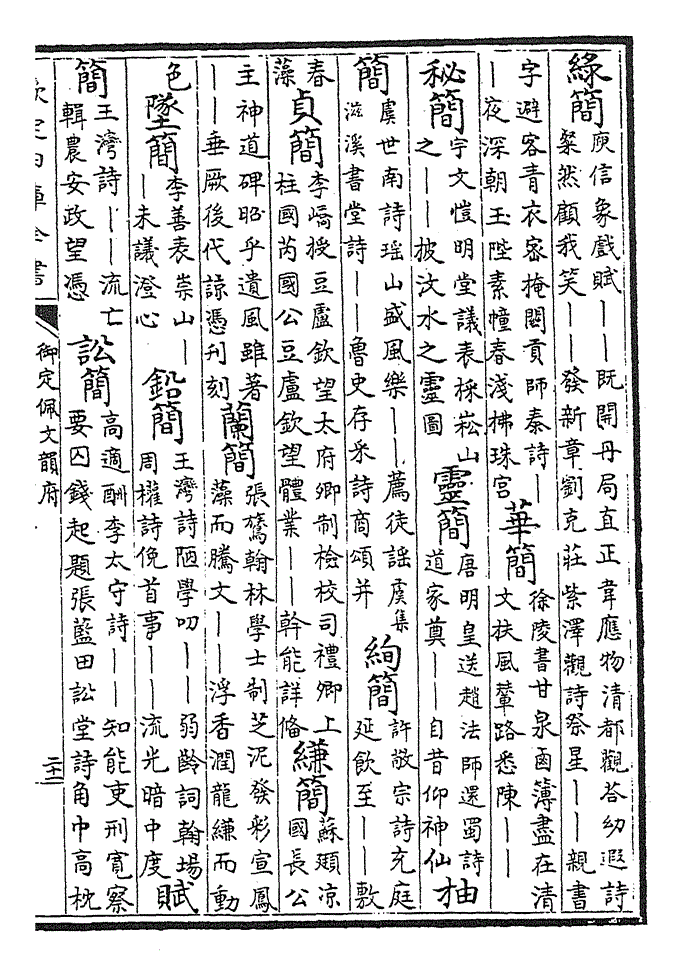 綠簡
庾信象戲賦——既開丹局直正韋應物清都觀荅幼遐詩
粲然顧我笑——發新章劉克莊紫澤觀詩祭星——親書
字避客青衣密掩關貢師泰詩—
—夜深朝玉陛素幢春淺拂珠宮
華簡
徐陵書甘泉鹵簿盡在清
文扶風輦路悉陳——
秘簡
宇文愷明堂議表採崧山
之——披汶水之靈圖
靈簡
唐明皇送趙法師還蜀詩
道家奠——自昔仰神仙
抽
簡
虞世南詩瑶山盛風樂——薦徒謡虞集
滋溪書堂詩——魯史存采詩商頌并
絢簡
許敬宗詩充庭
延飲至——敷
春
藻
貞簡
李嶠授豆盧欽望太府卿制檢校司禮卿上
柱國芮國公豆盧欽望體業——幹能詳俻
縑簡
蘇頲凉
國長公
主神道碑昭乎遺風雖著
——垂厥後代諒憑刋刻
蘭簡
張鷟翰林學士制芝泥發彩宣鳳
藻而騰文——浮香潤龍縑而動
色
墜簡
李善表崇山—
—未議澄心
鉛簡
王灣詩陋學叨——弱齡詞翰場
周權詩俛首事——流光暗中度
賦
簡
王灣詩——流亡
輯農安政望憑
訟簡
高適酬李太守詩——知能吏刑寛察
要囚錢起題張藍田訟堂詩角巾高枕
欽定四庫全書
御定佩文韻府